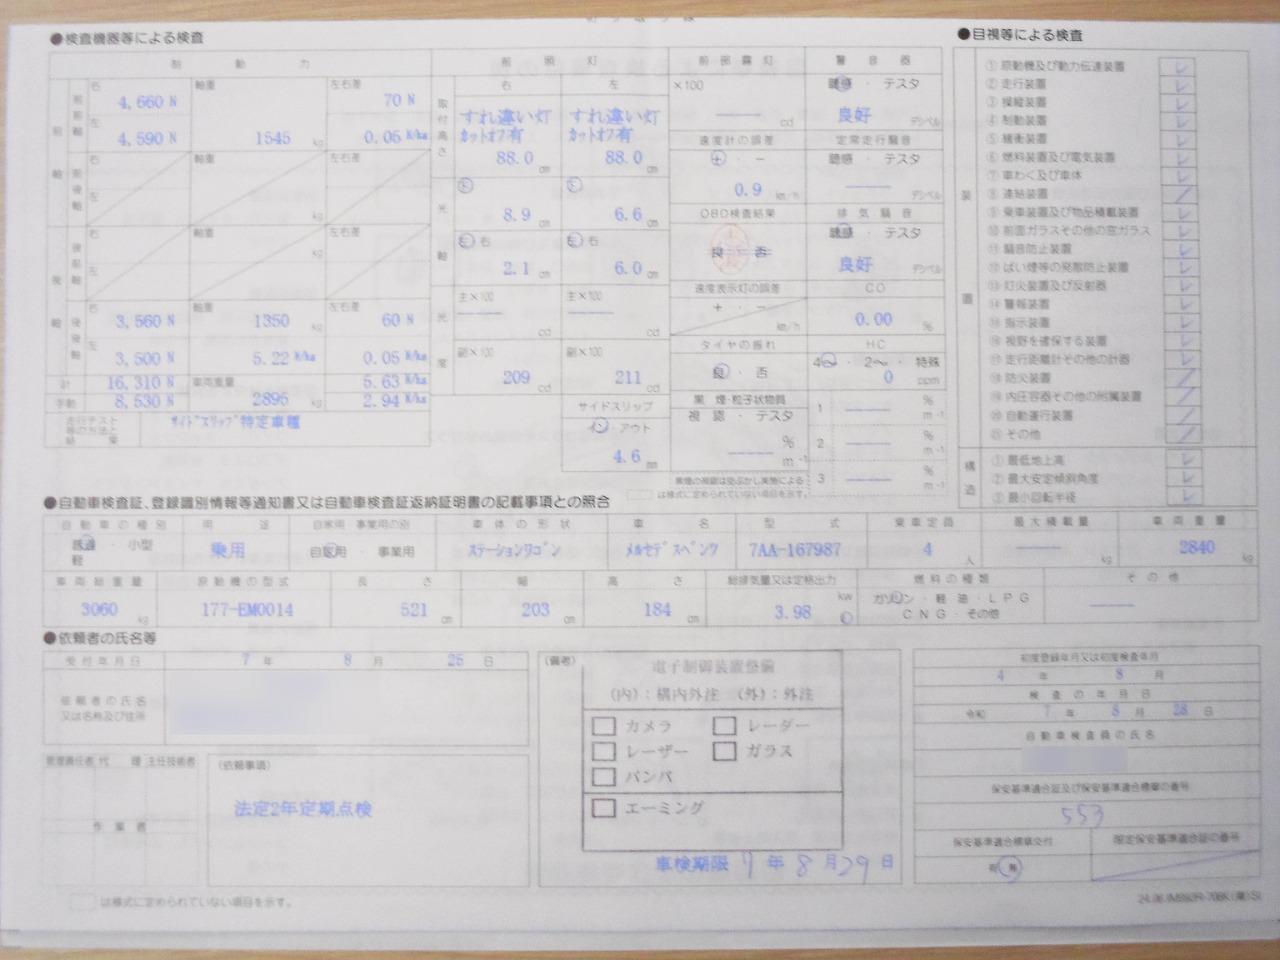 ●検査機器等による検査
制動力
前照灯
前部霧灯
警音器
右 4,660 N
左 4,590 N
軸重 1545 kg
左右差 70 N
0.05 N/kg
取付高さ
右
左
すれ違い灯 カットオフ有 88.0 cm
すれ違い灯 カットオフ有 88.0 cm
×100 cd
聴感・テスタ
良好 デシベル
速度計の誤差
+・-
0.9 km/h
定常走行騒音
聴感・テスタ
デシベル
右 左 軸重 kg 左右差
光軸
8.9 cm
6.6 cm
左 右 2.1 cm
左 右 6.0 cm
OBD検査結果
良 否
排気騒音
聴感・テスタ
良好 デシベル
右 左 軸重 kg 左右差
光度
主×100 cd
主×100 cd
副×100 209 cd
副×100 211 cd
速度表示灯の誤差
+・- km/h
CO
0.00 %
右 3,560 N
左 3,500 N
軸重 1350 kg
5.22 N/kg
左右差 60 N
0.05 N/kg
タイヤの振れ
良・否
HC
4〜・2〜・特殊
0 ppm
計 16,310 N 車両重量 5.63 N/kg
手動 8,530 N 2896 kg 2.94 N/kg
サイドスリップ
イン・アウト
4.6 mm
黒煙・粒子状物質
視認・テスタ
% m-1
1 % m-1
2 % m-1
3 % m-1
走行テスト等の方法と結果 サイドスリップ特定車種
は様式に定められていない項目を示す。
●目視等による検査
装置
①原動機及び動力伝達装置
②走行装置
③操縦装置
④制動装置
⑤緩衝装置
⑥燃料装置及び電気装置
⑦車わく及び車体
⑧連結装置
⑨乗車装置及び物品積載装置
⑩前面ガラスその他の窓ガラス
⑪騒音防止装置
⑫ばい煙等の発散防止装置
⑬灯火装置及び反射器
⑭警報装置
⑮指示装置
⑯視野を確保する装置
⑰走行距離計その他の計器
⑱防火装置
⑲内圧容器その他の附属装置
⑳自動運行装置
㉑その他
構造
①最低地上高
②最大安定傾斜角度
③最小回転半径
●自動車検査証、登録識別情報等通知書又は自動車検査証返納証明書の記載事項との照合
自動車の種別 用途 自家用・事業用の別 車体の形状 車名 型式 乗車定員 最大積載量 車両重量
普通・小型 軽 乗用 自家用・事業用 ステーションワゴン メルセデスベンツ 7AA-167987 4 人 kg 2840 kg
車両総重量 原動機の型式 長さ 幅 高さ 総排気量又は定格出力 燃料の種類 その他
3060 kg 177-EM0014 521 cm 203 cm 184 cm 3.98 kW L ガソリン・軽油・LPG CNG・その他
●依頼者の氏名等
受付年月日 7 年 8 月 25 日
依頼者の氏名又は名称及び住所
管理責任者代理 主任技術者
作業者
(依頼事項)
法定2年定期点検
は様式に定められていない項目を示す。
(備考)
電子制御装置整備
(内):構内外注 (外):外注
カメラ レーダー
レーザー ガラス
バンパ
エーミング
車検期限 7年8月29日
初度登録年月又は初度検査年月
4 年 8 月
検査の年月日
令和 7 年 8 月 28 日
自動車検査員の氏名
保安基準適合証及び保安基準適合標章の番号
553
保安基準適合標章交付
有・無
限定保安基準適合証の番号